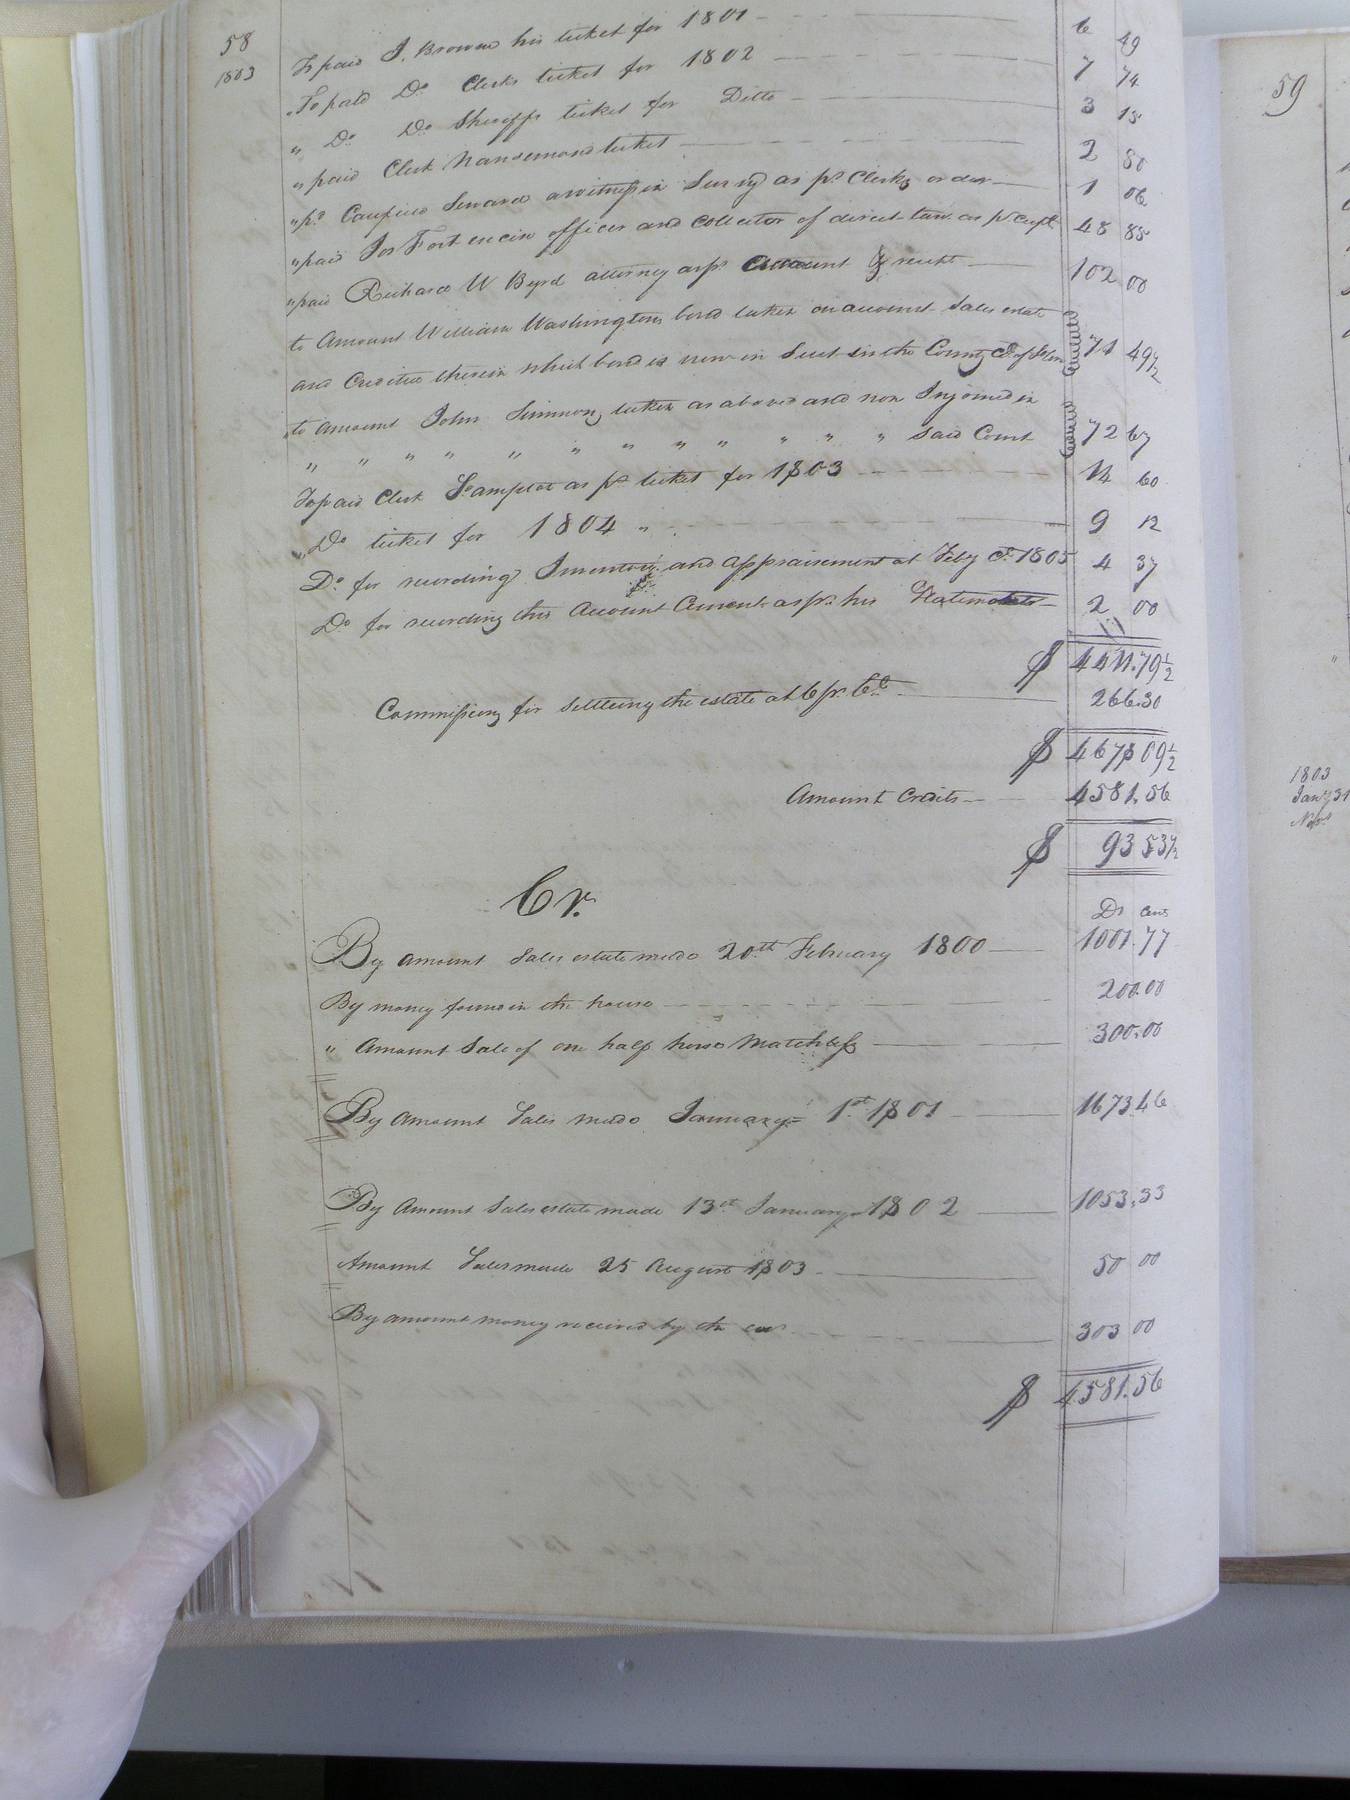 58
1803
To paid J. Browne his ticket for 1801 6 49
"To paid Do Clerks ticket for 1802 7 74
" Do Do Sheriffs ticket for Ditto 3 15
" paid Clerk Nansemond ticket 2 80
" pd Seward a witness in Surry as pr Clerks order 1 06
" paid Jos Fort excise officer and collector of direct tax as pr rcpt 48 85
" paid Richard W Byrd attorney as pr Account & receipt 102 00
to Amount William Washingtons bond taken on account Sales estate
and Credited therein which bond is now in Suit in the County Ct of 71 49 1/2
to amount John Simmons taken as above and now Injoined in
" " " " " " " " " " " " said Court 72 67
To paid Clerk So ampton as pr ticket for 1803 14 60
" Do ticket for 1804 " 9 12
Do for recording Inventory and appraisement at Feby Ct 1805 4 37
Do for recording this Account Current as pr his Statement 2 00
$ 4411.79 1/2
Commissions for settleing the estate at 6 pr Ct 266.30
$ 4678 09 1/2
Amount Credits 4581.56
$ 93 53 1/2
Cr.
Ds Cents
By amount Sales estate made 20th February 1800 1001.77
By money found in the house 200.00
" Amount Sale of one half horse Matchless 300.00
By Amount Sales made January 1st 1801 1673.46
By Amount Sales estate made 13th January 1802 1053.33
Amount Sales made 25 August 1803 50 00
By amount money received by the exr 303 00
$ 4581.56
59
1803
Jany 31
Novr